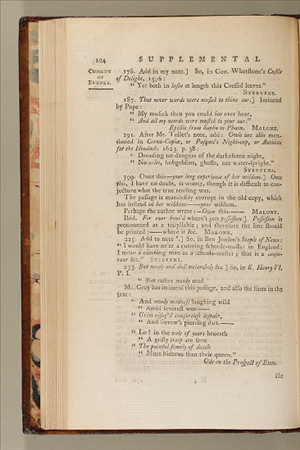 104 SUPPLEMENTAL
COMEDY
OF
ERRORS.
176. Add in my note.] So, in Geo. Whetstone's Castle
of Delight, 1576:
" Yet both in at length this Cressid leaves."
STEEVENS.
187. That never words were musick to thine ear.] Imitated
by Pope:
" My musick then you could for ever hear,
" And all my words were musick to your ear."
Epistle from Sapho to Phaon. MALONE.
191. After Mr. Tollet's note, add: Owls are also men-
tioned in Cornu-Copiæ, or Pasquil's Night-cap, or Antidote
for the Headach. 1623. p. 38:
" Dreading no dangers of the darksome night,
" No oules, hobgoblins, ghosts, nor water-spright."
STEEVENS.
199. Once this—your long experience of her wisdom.] Once
this, I have no doubt, is wrong, though it is difficult to con-
jecture what the true reading was.
The passage is manifestly corrupt in the old copy, which
has instead of her wisdom—your wisdom.
Perhaps the author wrote:—Own this.— MALONE.
Ibid. For ever hous'd where't gets possession.] Possession is
pronounced as a and therefore the line should
be printed:—where it &c. MALONE.
225. Add to note .] So, in Ben Jonson's Staple of News:
" I would have ne'er a cunning schoole-master in England;
I mean a cunning man as a schoole-master; that is a conju-
rour &c." STEEVENS.
233. But moody and dull melancholy &c.] So, in K. Henry VI.
P. I.
" But rather moody mad
Mr. Gray has imitated this passage, and also the lines in the
text:
" And moody madness laughing wild
" Amid severest woe—
" Grim visag'd comfortless despair,
" And sorrow's piercing dart.—
" Lo! in the vale of years beneath
" A grisly troop are seen
" The painful family of death
" More hideous than their queen."
Ode on the Prospect of Eton.